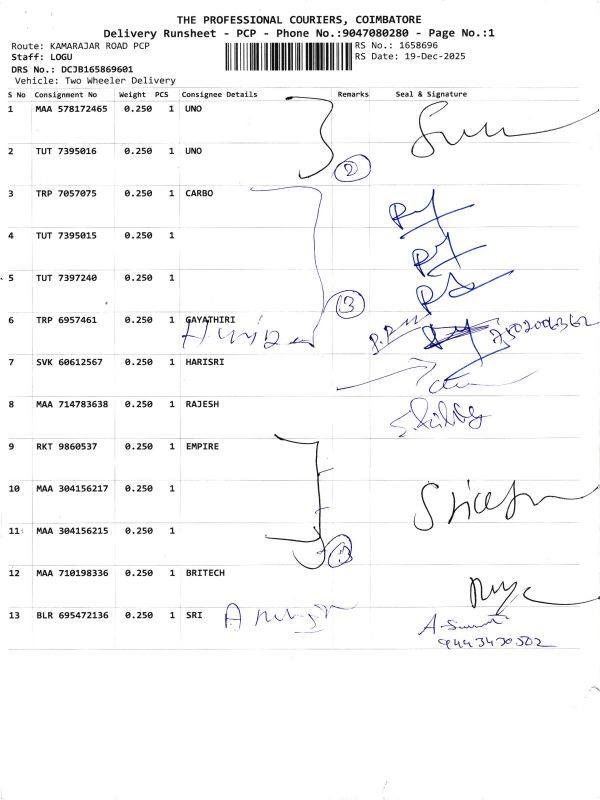 THE PROFESSIONAL COURIERS, COIMBATORE
Delivery Runsheet - PCP - Phone No.:9047080280 - Page No.:1
Route: KAMARAJAR ROAD PCP
RS No.: 1658696
Staff: LOGU
RS Date: 19-Dec-2025
DRS No.: DCJB165869601
Vehicle: Two Wheeler Delivery
S No Consignment No Weight PCS Consignee Details Remarks Seal & Signature
1 MAA 578172465 0.250 1 UNO
2 TUT 7395016 0.250 1 UNO
2
3 TRP 7057075 0.250 1 CARBO
4 TUT 7395015 0.250 1
5 TUT 7397240 0.250 1
3
6 TRP 6957461 0.250 1 GAYATHIRI
7502006362
7 SVK 60612567 0.250 1 HARISRI
8 MAA 714783638 0.250 1 RAJESH
9 RKT 9860537 0.250 1 EMPIRE
10 MAA 304156217 0.250 1
11 MAA 304156215 0.250 1
12 MAA 710198336 0.250 1 BRITECH
13 BLR 695472136 0.250 1 SRI